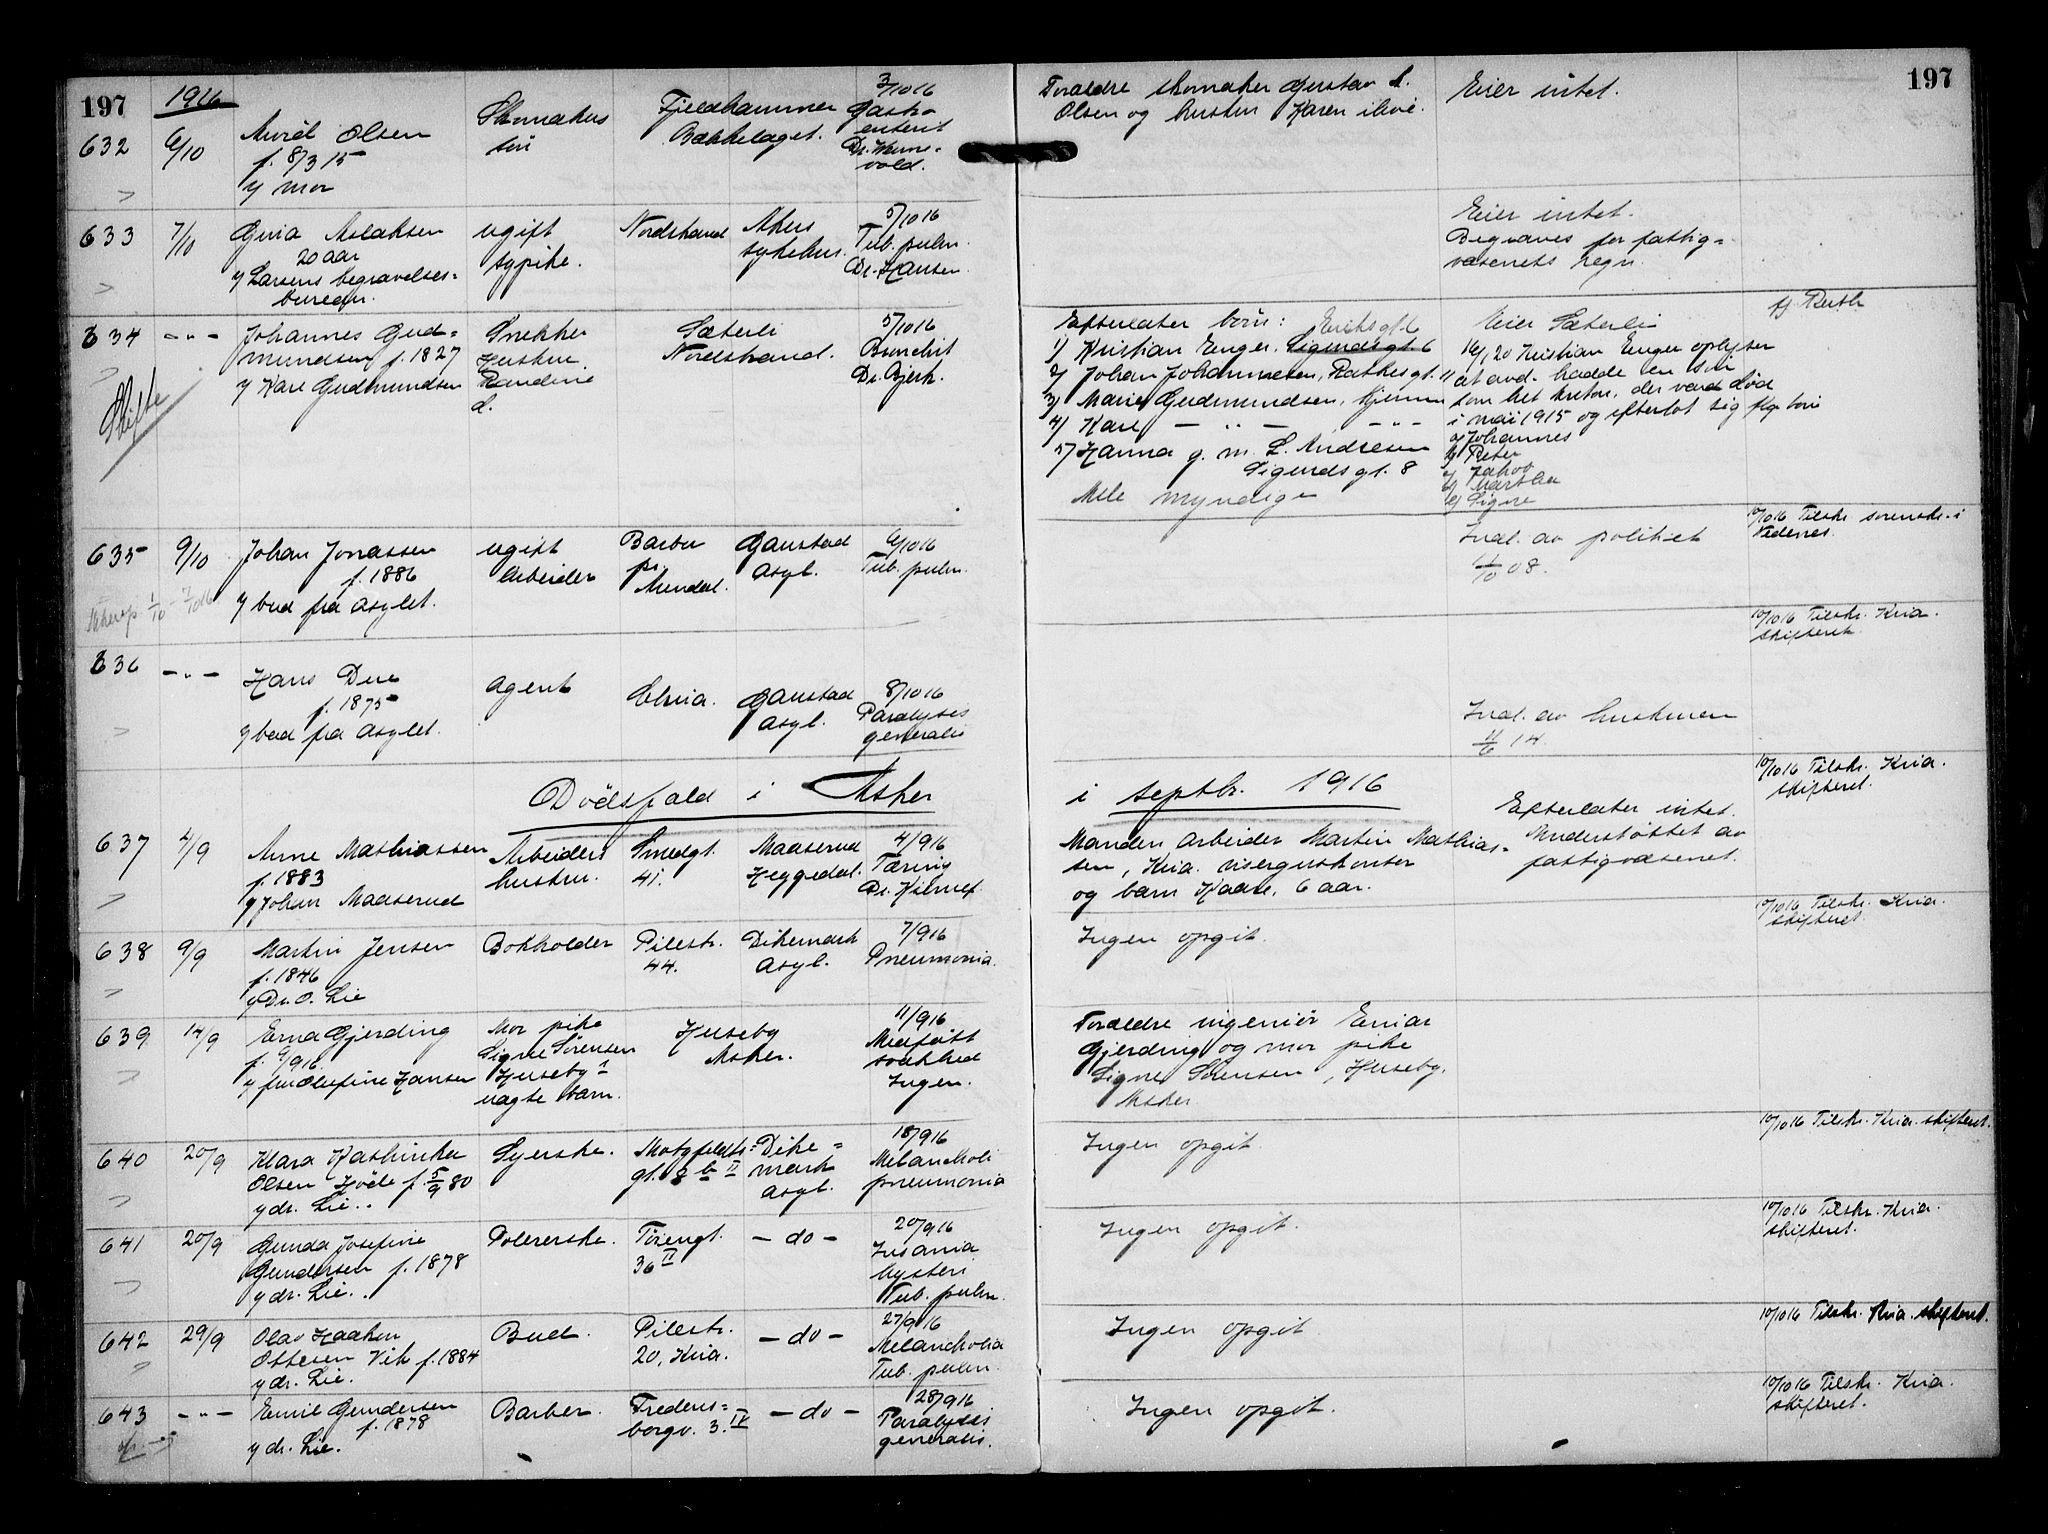 197
1916
197
632
6/10
Aurél Olsen
f. 8/3 15
v/ mor
Skomakers
søn
Fjeldhammer
Bækkelaget.
3/10 16
Gastro
enterit
Dr.
vold.
Forældre skomaker Gustav A.
Olsen og hustru Karen ilive.
Eier intet.
633
7/10
Guria Aslaksen
20 aar
v/ Larsens begravelses-
bureau.
ugift
sypike.
Nordstrand
Akers
sykehus.
5/10 16
Tub. pulm.
Dr. Hansen.
Eier intet.
Begraves for fattig-
væsenets regn.
634
— " —
Johannes Gud-
mundsen f. 1827
v/ Karl Gudmundsen
Skifte
Snekker
Hustru
Randine
d.
Sæterli
Nordstrand.
5/10 16
Bronchit
Dr. Bjerk.
Efterlater børn: Eriksgt. 6
1) Kristian Enger. Sigurdsgt. 6
2) Johan Johannesen, Rathkesgt. 11
3) Marie Gudmundsen, Hjemme
4) Karl — " — — " —
5) Hanna g. m. L. Andresen
Sigurdsgt. 8
Alle myndige
Eier Sæterli
16/1 20 Kristian Enger oplyser
at avd. hadde en søn
som het Anton, der var død
i mai 1915 og efterlot sig flg. børn
a) Johannes
b) Peter
c) Jakob
d) Martha
e) Signe
f) Ruth
635
9/10
Johan Jonassen
f. 1886
v/ bud fra Asylet.
1/10 - 7/10 16
ugift
Arbeider
Barbu
pr.
Arendal.
Gaustad
Asyl.
6/10 16
Tub. pulm.
Indl. av politiet
1/10 08.
10/10 16 Tilskr. sorenskr. i
Nedenes.
636
— " —
Hans Due
f. 1875
v/ bud fra Asylet.
Agent
Chria.
Gaustad
Asyl.
8/10 16
Paralyses
generalis
Indl. av hustruen
11/6 14.
10/10 16 Tilskr. Kria.
skifteret.
Dødsfald i Asker
i septbr. 1916
637
4/9
Anne Mathiassen
f. 1883
v/ Johan Maaserud
Arbeiders
hustru.
Smedgt.
41.
Maaserud
Heggedal.
4/9 16
Tæring
Dr.
Manden Arbeider Martin Mathias-
sen, Kria. visergutskontor
og barn Kaare, 6 aar.
Efterlater intet.
Understøttet av
fattigvæsenet.
10/10 16 Tilskr. Kria.
skifteret.
638
9/9
Martin Jensen
f. 1846
v/ Dr. O. Lie
Bokholder
Pilestr.
44.
Dikemark
Asyl.
7/9 16
Pneumonia.
Ingen opgit.
10/10 16 Tilskr. Kria.
skifteret.
639
14/9
Erna Gjerding
f. 9/9 16.
v/ fru Olefine Hansen
Mor pike
Signe Sørensen
Huseby's
uegte barn.
Huseby
Asker.
11/9 16
Medfødt
svakhed
Ingen.
Forældre ingeniør Einar
Gjerding og mor pike
Signe Sørensen, Huseby.
Asker.
640
20/9
Klara Kathinka
Olsen Høili f. 5/9 80
v/ dr. Lie.
Syerske.
Motzfeldts-
gt. 8 b II
Dike-
mark
Asyl.
18/9 16
Melancholi
pneumonia
Ingen opgit.
10/10 16 Tilskr. Kria. skifteret.
641
20/9
Gunda Josefine
Gundersen f. 1878
v/ dr. Lie.
Polererske.
Tøiengt.
36 II
— do —
20/9 16
Insania
hysteri
Tub. pulm.
Ingen opgit.
10/10 16 Tilskr. Kria.
skifteret.
642
29/9
Olav Haaken
Ottesen Vik f. 1884
v/ dr. Lie.
Bud.
Pilestr.
20, Kria.
— do —
27/9 16
Melancholia
Tub. pulm.
Ingen opgit.
10/10 16 Tilskr. Kria. skifteret.
643
— " —
Emil Gundersen
f. 1878
v/ dr. Lie.
Barber.
Fredens-
borgv. 3. IV
— do —
28/9 16
Paralysis
generalis.
Ingen opgit.
10/10 16 Tilskr. Kria.
skifteret.